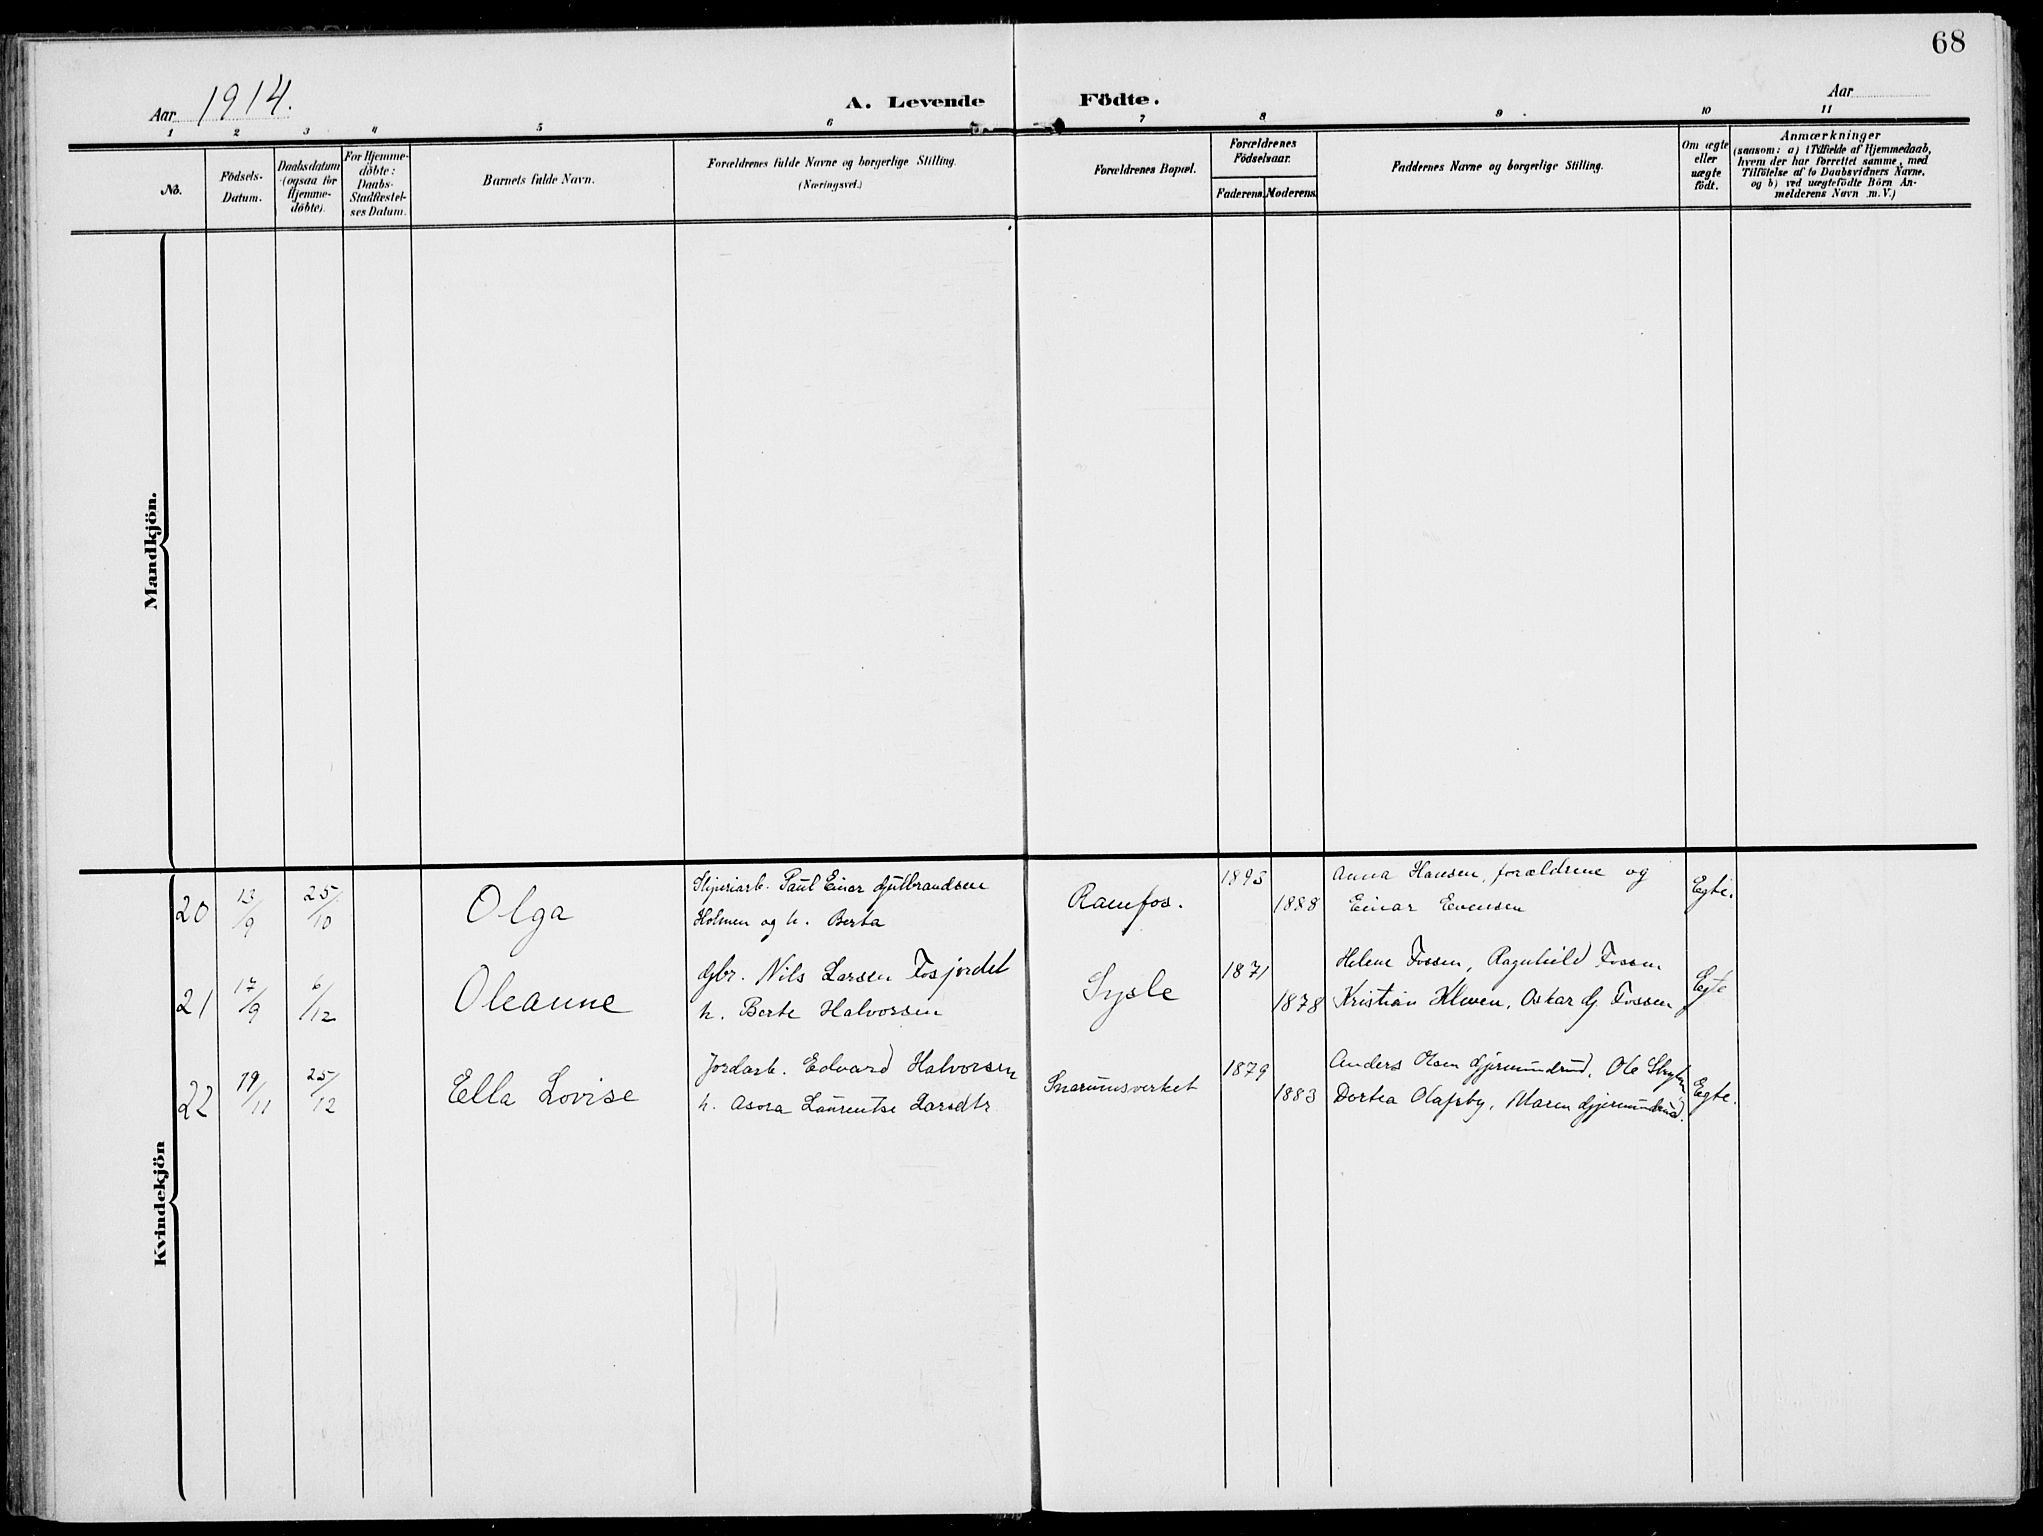 68
Aar 1914.
A. Levende Födte.
Aar
1 2 3 4 5 6 7 8 9 10 11
No.
Födsels-
Datum.
Daabsdatum
(ogsaa for
Hjemme-
døbte).
For Hjemme-
døbte:
Daabs-
Stadfæstel-
ses Datum.
Barnets fulde Navn.
Forældrenes fulde Navne og borgerlige Stilling.
(Næringsvei.)
Forældrenes Bopæl.
Forældrenes
Fødselsaar.
Faderens. Moderens.
Faddernes Navne og borgerlige Stilling.
Om ægte
eller
uægte
født.
Anmærkninger
(saasom: a) i Tilfælde af Hjemmedaab,
hvem der har forrettet samme, med
Tilføielse af to Daabsvidners Navne,
og b) ved uægtefødte Börn An-
melderens Navn m. V.)
Mandkjön.
Kvindekjön
20 13/9 25/10 Olga
Paul Einar Gulbrandsen
Holmen og h. Berta
Ramfos. 1895 1888
Anna Hansen, forældrene og
Einar Evensen
Egte.
21 17/9 6/12 Oleanne
Gbr. Nils Larsen Fosjordet
h. Berte Halvorsen
Sysle 1871 1878
Helene Fossen, Ragnhild Fossen
Kristian Kleven, Oskar G. Fossen
Egte
22 19/11 25/12 Ella Lovise
Jordarb. Edvard Halvorsen
h. Asora Laurentse Larsdtr
Snarumsverket 1879 1883
Anders Olsen Gjermundrud, Ole
Dortea Olafsby, Maren Gjermundrud.
Egte.